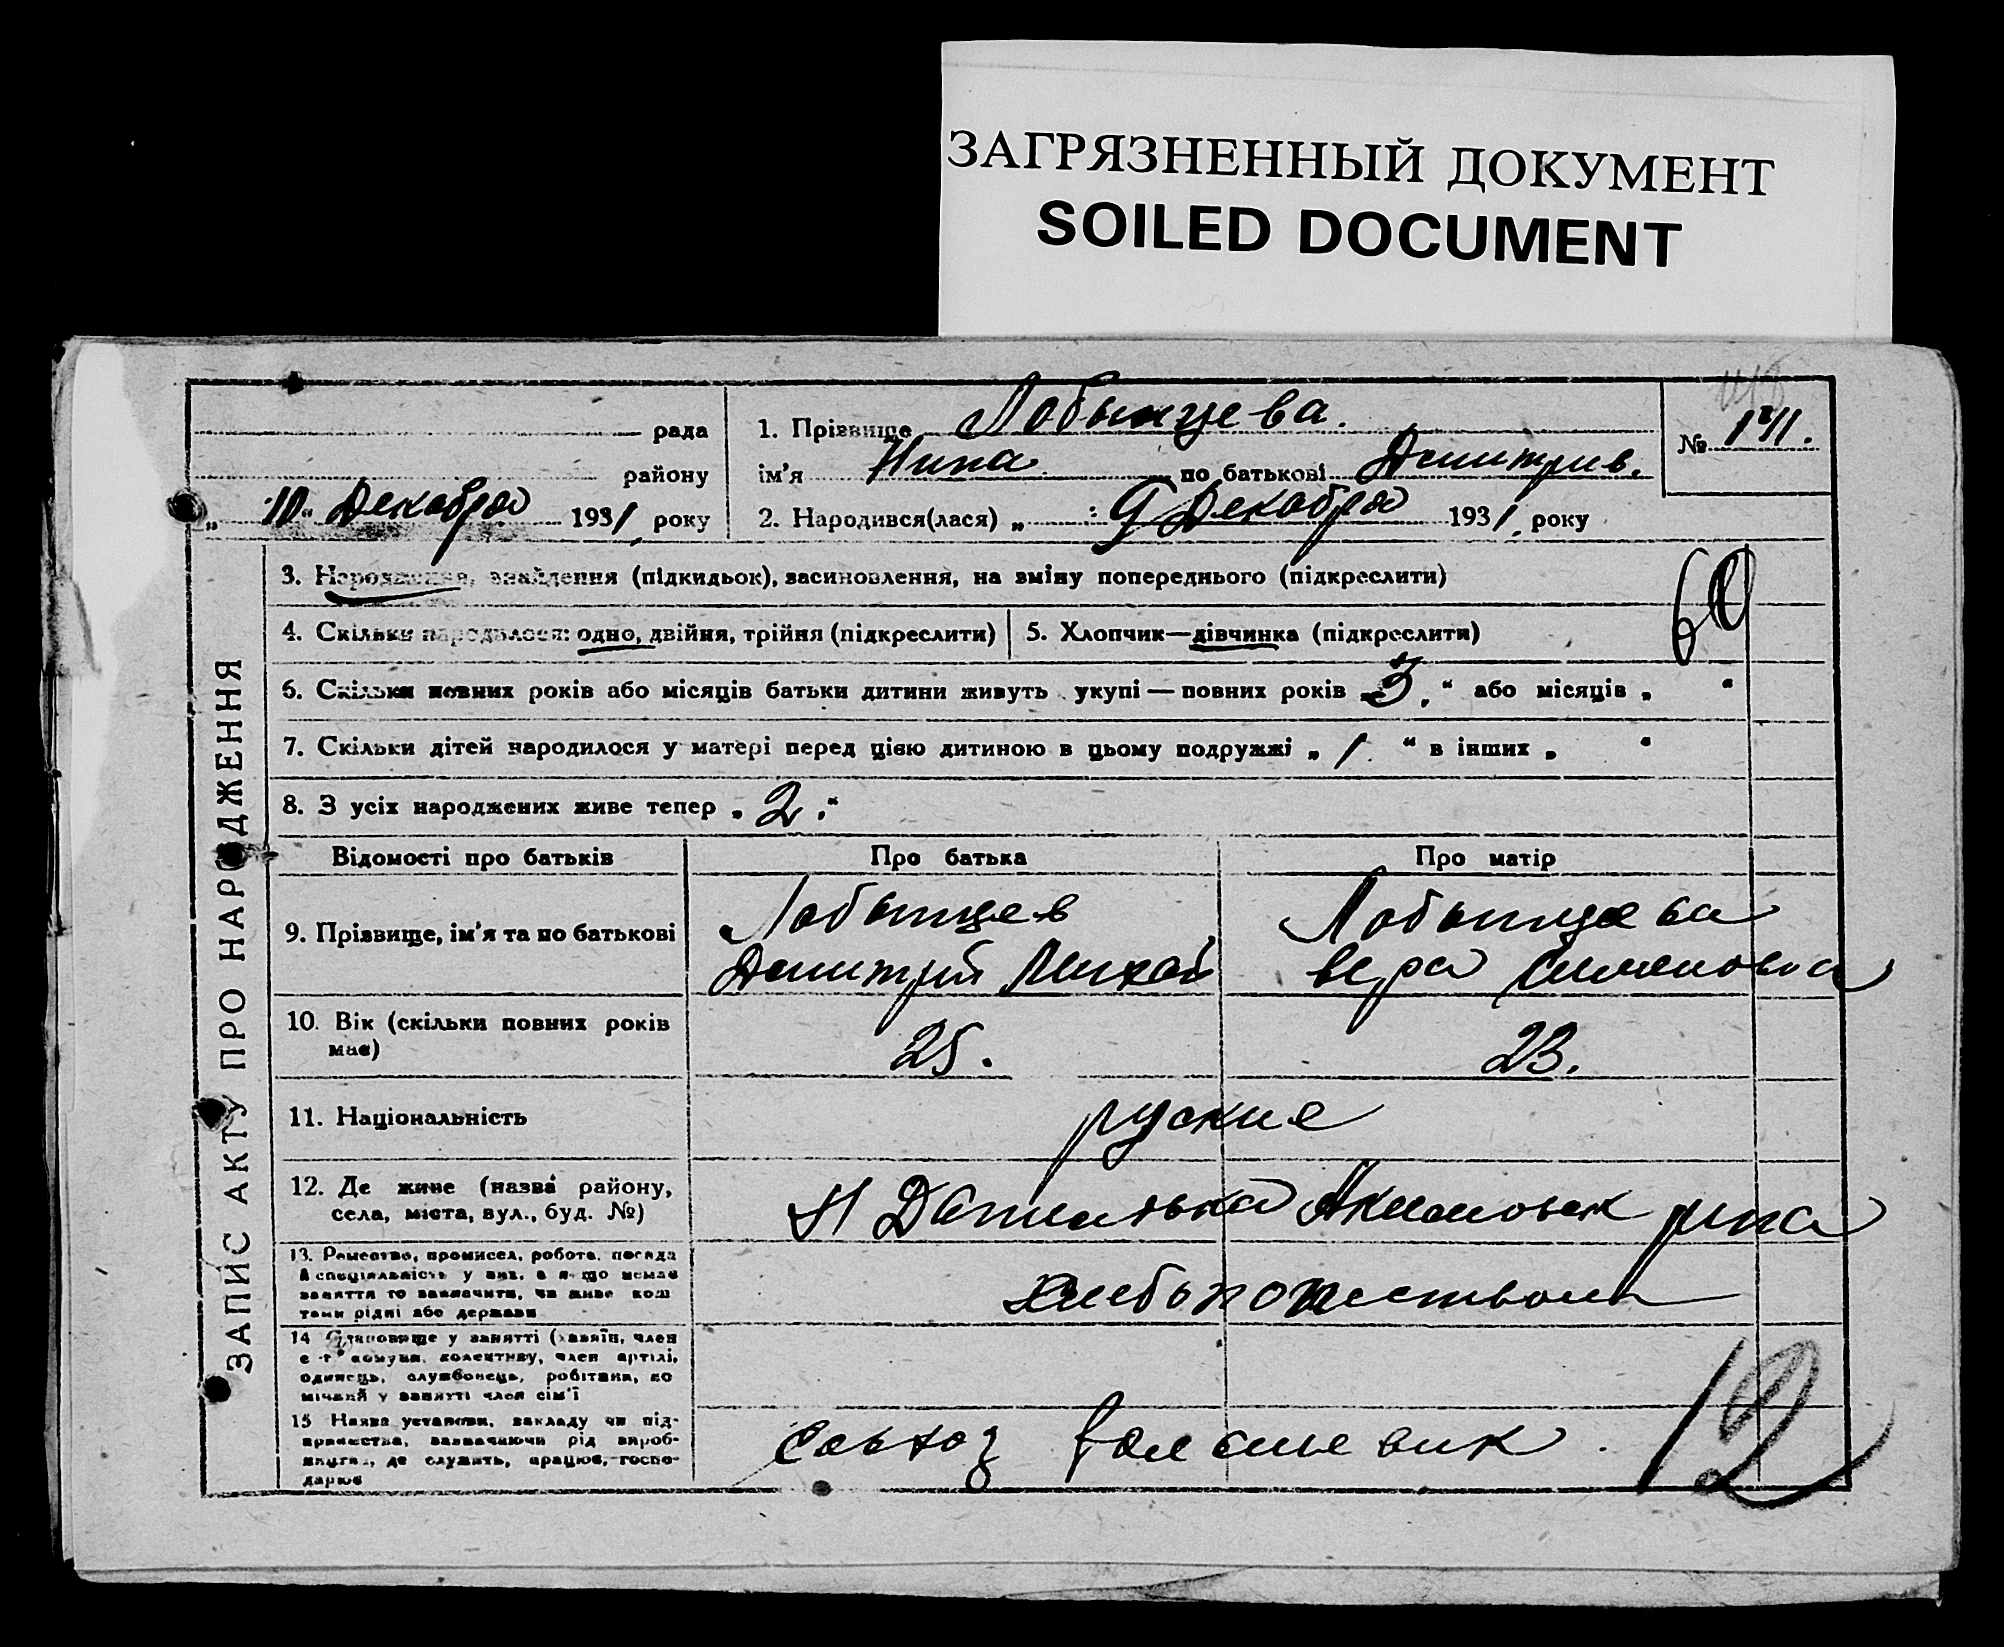 ЗАГРЯЗНЕННЫЙ ДОКУМЕНТ
SOILED DOCUMENT
рада
району
„10“ Декабря 1931, року
1. Прізвище Лобынцева.
ім’я Нина по батькові Дмитрив.
2. Народився(лася) „ 9 Декабря 1931, року
№ 141.
ЗАПИС АКТУ ПРО НАРОДЖЕННЯ
3. Народження, знайдення (підкидьок), засиновлення, на зміну попереднього (підкреслити)
69
4. Скільки народилося: одно, двійня, трійня (підкреслити)
5. Хлопчик—дівчинка (підкреслити)
6. Скільки повних років або місяців батьки дитини живуть укупі — повних років „3.“ або місяців „ “
7. Скільки дітей народилося у матері перед цією дитиною в цьому подружжі „ 1 “ в інших „ “
8. З усіх народжених живе тепер „ 2. “
Відомості про батьків
Про батька
Про матір
9. Прізвище, ім’я та по батькові
Лобынцев
Дмитрий Михай
Лобынцева
Вера Симоновна
10. Вік (скільки повних років
має)
25.
23.
11. Національність
руские
12. Де живе (назва району,
села, міста, вул., буд. №)
Н Акимовск рна
13. Ремество, промисел, робота, посада
й спеціяльність у них, а якщо немає
заняття то зазначити, чи живе кош
тами рідні або держави
хлебопошеством
14 Становище у занятті (хазяїн, член
комуни, колективу, член артілі,
одинець, службовець, робітник, по
мічний у занятті член сім’ї
15 Назва установи, закладу чи під-
приємства, зазначаючи рід вироб-
ництва, де служить, працює, госпо-
дарює
Совхоз Большевик.
12